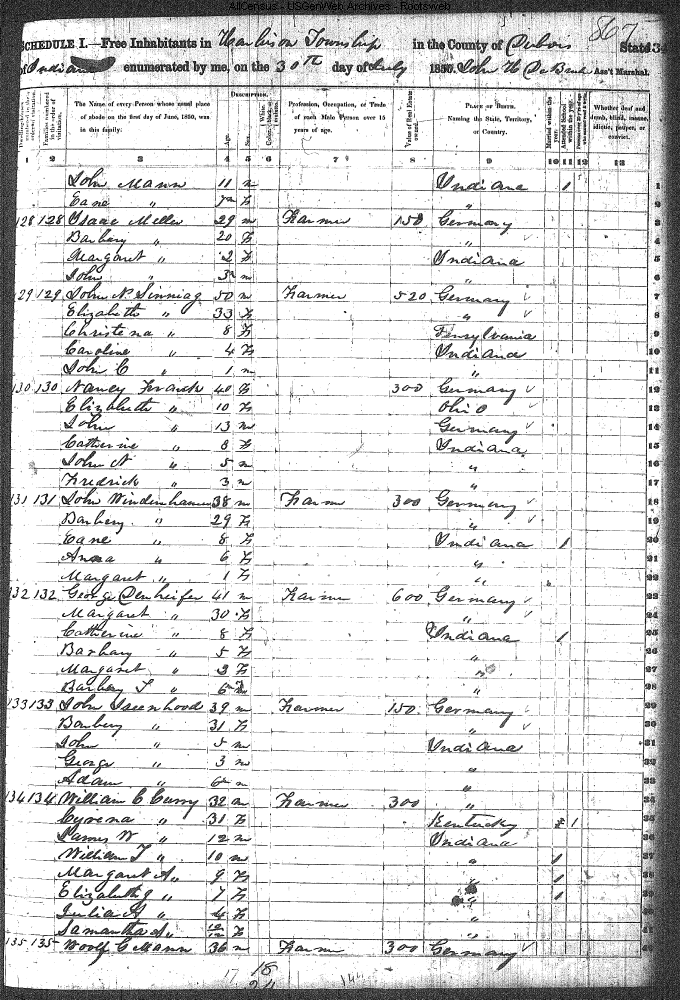 AllCensus - USGenWeb Archives - Rootsweb
867
SCHEDULE I.—Free Inhabitants in Harbison Township in the County of Dubois State
of Indiana enumerated by me, on the 30th day of July 1850. John H DeBruler Ass't Marshal.
Dwelling-houses numbered in the order of visitation.
Families numbered in the order of visitation.
The Name of every Person whose usual place of abode on the first day of June, 1850, was in this family.
Description.
Age.
Sex.
White, Color, black, or mulatto.
Profession, Occupation, or Trade of each Male Person over 15 years of age.
Value of Real Estate owned.
Place of Birth. Naming the State, Territory, or Country.
Married within the year.
Attended School within the year.
Whether deaf and dumb, blind, insane, idiotic, pauper, or convict.
1 2 3 4 5 6 7 8 9 10 11 12 13
John Mann 11 m Indiana 1 1
Eane " F " 2
128 128 Isaac Meller 29 m Farmer 150 Germany 3
Barbery " 20 F " 4
Margaret " 2 F Indiana 5
John " m " 6
129 129 John N. Sinniag 50 m Farmer 520 Germany 7
Elizabeth " 33 F " 8
Christena " 8 F Pensylvania 9
Caroline " 4 F Indiana 10
John C " 1 m " 11
130 130 Nancy Frank 40 F 300 Germany 12
Elizabeth " 10 F Ohio 13
John " 13 m Germany 14
Catherine " 8 F Indiana 15
John N " 5 m " 16
Fredrick " 3 m " 17
131 131 John Windenhamer 38 m Farm 300 Germany 18
Barbery " 29 F " 19
Eane " 8 F Indiana 1 20
Anna " 6 F " 21
Margaret " 1 F " 22
132 132 George Denheifer 41 m Farmer 600 Germany 23
Margaret " 30 F " 24
Catherine " 8 F Indiana 1 25
Barbary " 5 F " 26
Margaret " 3 F " 27
Barbery T " F " 28
133 133 John Isenhood 39 m Farmer 150 Germany 29
Barbery " 31 F " 30
John " 5 m Indiana 31
George " 3 m " 32
Adam " m " 33
134 134 William C Curry 32 m Farmer 300 " 34
Cyrena " 31 F Kentucky 1 35
James W " 12 m Indiana 36
William T " 10 m " 1 37
Margaret A " 9 F " 1 38
Elizabeth J " 7 F " 1 39
Julia A " 4 F " 40
Samantha A " F " 41
135 135 Woolf C Mann 36 m Farmer 300 Germany
17 18